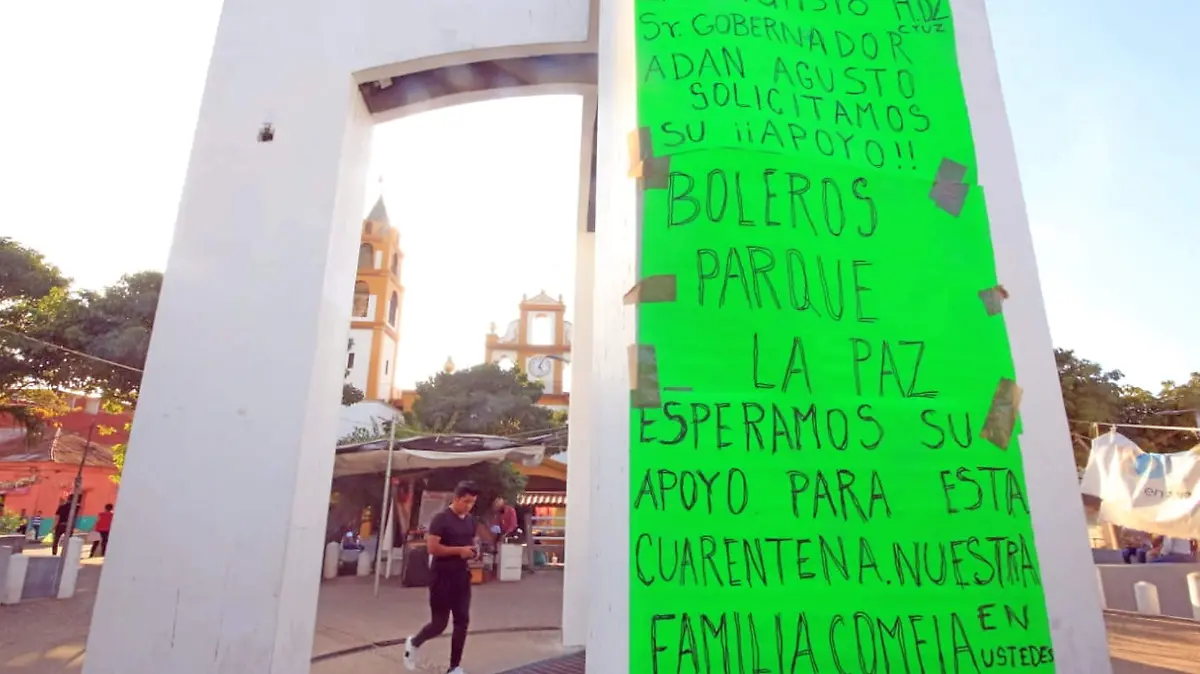 HDZ
CRUZ
Sr. GOBERNADOR
ADAN AGUSTO
SOLICITAMOS
SU ¡¡APOYO!!
BOLEROS
PARQUE
LA PAZ
ESPERAMOS SU
APOYO PARA ESTA
CUARENTENA. NUESTRA
FAMILIA COMFIA EN
USTEDES